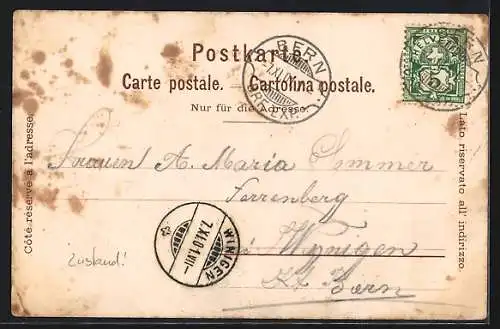 Postkarte.
Carte postale. Cartolina postale.
Nur für die Adresse.
Côté réservé à l'adresse.
Lato riservato all' indirizzo.
BERN
HELVETIA
A. Maria
Ferrenberg
Wynigen
Kt. Bern
WYNIGEN
Zustand!